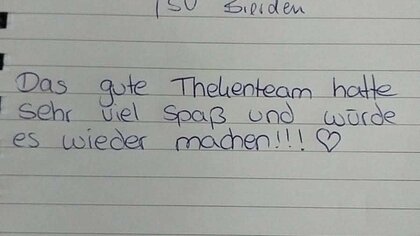 TSV Sierden
Das gute Thekenteam hatte
sehr viel Spaß und würde
es wieder machen!!! ♡